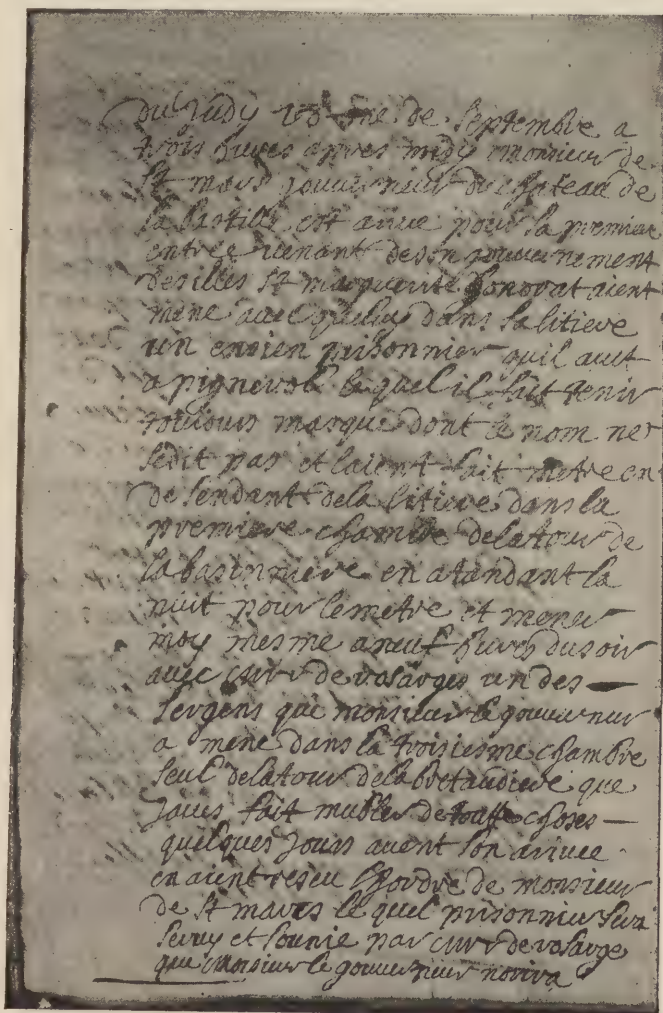 du judy 18me de septembre a
trois heures apres midy monsieur de
st mars gouverneur du chateau de
la bastille est arive pour sa premiere
entree venant de son gouvernement
des illes st marguerite honorat aient
mene avec queluy dans sa litiere
un ensien prisonnier quil avet
a pignerol lequel il fait tenir
toujours masque dont le nom ne
se dit pas et laient fait metre en
desendant de la litiere dans la
premiere chambre de la tour de
la basinniere en atandant la
nuit pour le metre et mener
moy mesme a neuf heures du soir
avec mr de rosarges un des —
sergens que monsieur le gouverneur
a mene dans la troisiesme chambre
seul de la tour de la bretaudiere que
javes fait mubler de toutte choses —
quelques jours avent son arivee
en aient reseu lhordre de monsieur
de st mars le quel prisonnier sera
servy et sounie par mr de rosarge
que monsieur le gouverneur norira